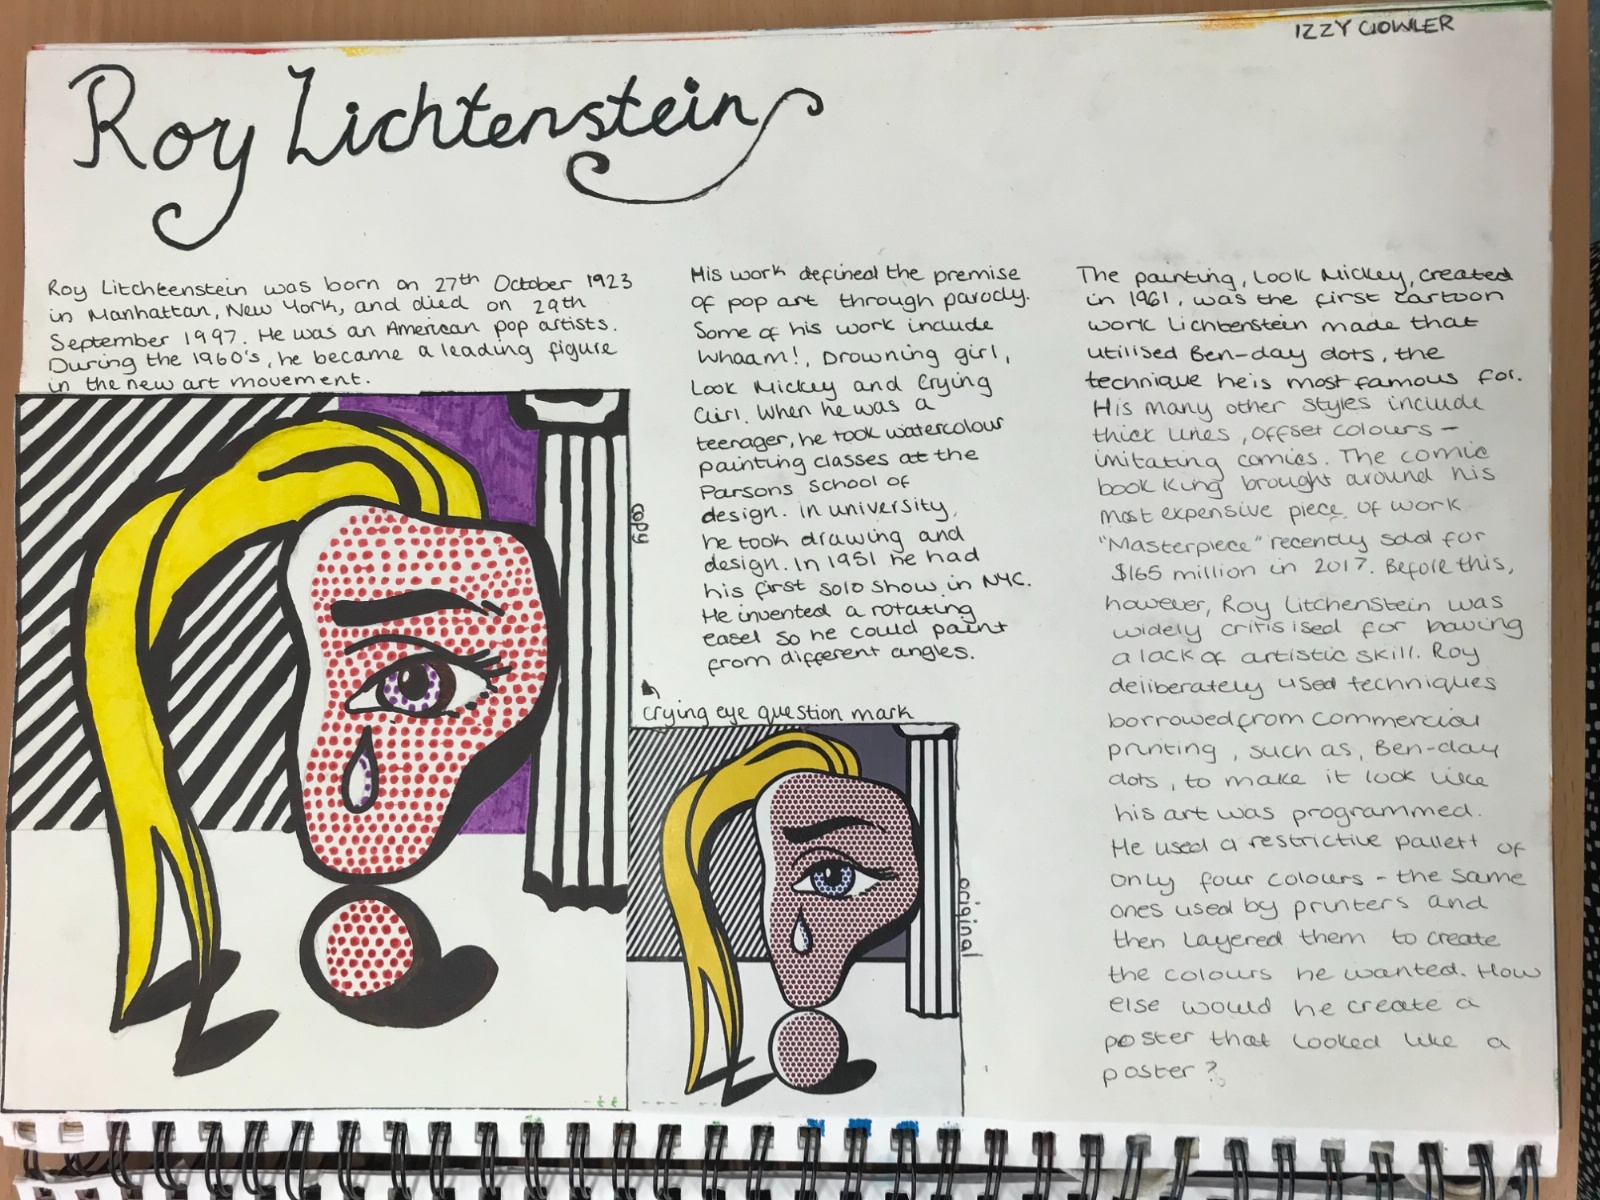 IZZY GOWLER
Roy Lichtenstein
Roy Litchteenstein was born on 27th October 1923
in Manhattan, New York, and died on 29th
September 1997. He was an American pop artists.
During the 1960's, he became a leading figure
in the new art movement.
copy
His work defined the premise
of pop art through parody.
Some of his work include
Whaam!, Drowning girl,
Look Mickey and Crying
Girl. When he was a
teenager, he took watercolour
painting classes at the
Parsons School of
design. in university,
he took drawing and
design. In 1951 he had
his first solo show in NYC.
He invented a rotating
easel so he could paint
from different angles.
crying eye question mark
original
The painting, Look Mickey, created
in 1961, was the first cartoon
work Lichtenstein made that
utilised Ben-day dots, the
technique he is most famous for.
His many other styles include
thick lines, offset colours -
imitating comics. The comic
book king brought around his
most expensive piece of work
"Masterpiece" recently sold for
$165 million in 2017. Before this,
however, Roy Litchenstein was
widely critisised for having
a lack of artistic skill. Roy
deliberately used techniques
borrowed from commercial
printing, such as, Ben-day
dots, to make it look like
his art was programmed.
He used a restrictive pallett of
only four colours - the same
ones used by printers and
then layered them to create
the colours he wanted. How
else would he create a
poster that looked like a
poster?